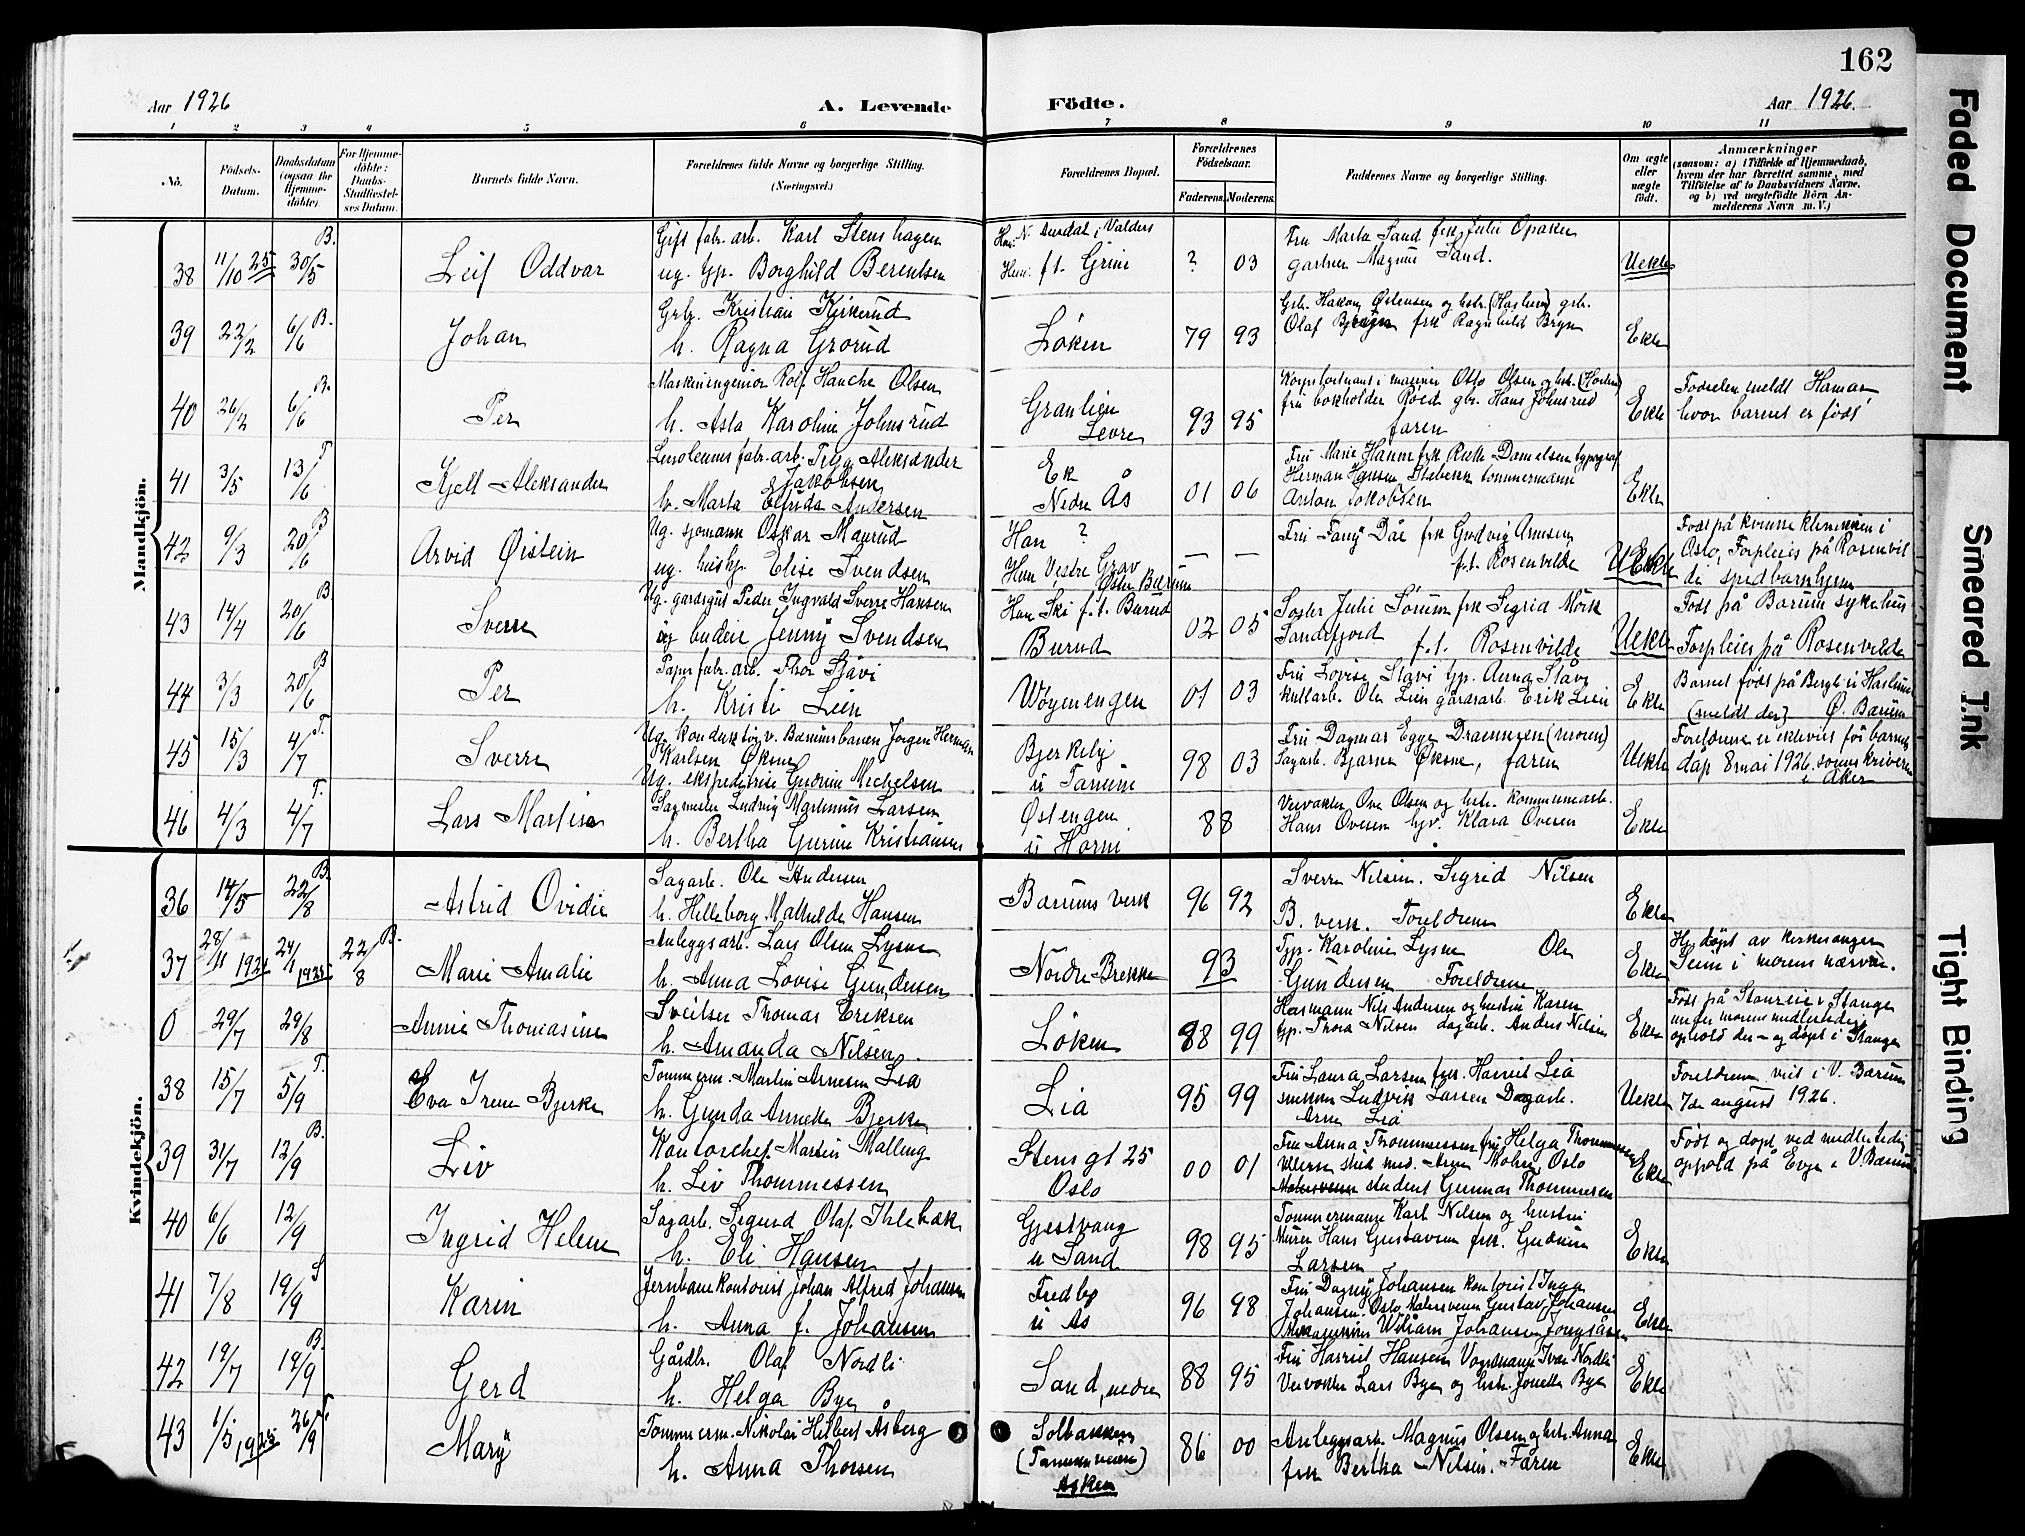 162
Aar 1926
A. Levende
Födte.
Aar 1926.
1 2 3 4 5 6 7 8 9 10 11
No.
Födsels-Datum.
Daabsdatum (ogsaa for Hjemme-döbte).
For Hjemme-döbte: Daabs-Stadfæstel-ses Datum.
Barnets fulde Navn.
Forældrenes fulde Navne og borgerlige Stilling.
(Næringsvei.)
Forældrenes Bopæl.
Forældrenes Födselsaar.
Faderens. Moderens.
Faddernes Navne og borgerlige Stilling.
Om ægte eller uægte födt.
Anmærkninger
(saasom: a) i Tilfælde af Hjemmedaab, hvem der har forrettet samme, med Tilföielse af to Daabsvidners Navne, og b) ved uægtefödte Börn An-melderens Navn m. V.)
Mandkjön.
38 11/10 25 30/5 B. Leif Oddvar
Gift fabr. arb. Karl Stenshagen
ug. tjp. Borghild Berentsen
Han: N. Aurdal i Valders
Hun: f.t. Grini
? 03
Fru Marta Sand frk Julie Opaker
gartner Magnus Sand.
Uekte
39 22/2 6/6 B. Johan
Grbr. Kristian Kirkerud
h. Ragna Grorud
Løken 79 93
Grb. Hakon Østensen og hstr. (Haslum) grb.
Olaf Bryn frk Ragnhild Bryn
Ekte
40 26/2 6/6 B. Per
Maskiningeniør Rolf Hanche Olsen
h. Asta Karoline Johnsrud
Granlien
Levre
93 95
fru bokholder Roed gbr. Hans Johnsrud
faren
Ekte
Fødselen meldt Hamar
hvor barnet er født
41 3/5 13/6 T. Kjell Aleksander
Linoleums fabr. arb. Trygv Aleksander
Jakobsen
h. Marta Elfrida Andersen
Ek
Nedre Ås
01 06
Herman Hansen Stabekk tømmermann
Anton Jakobsen
Ekte
42 9/3 20/6 B Arvid Øistein
Ug. sjømann Oskar Maurud
ug. hushj. Elise Svendsen
Han ?
Hun Vestre Grav
Østre Bærum
— —
Fru Fanny Dåe frk Gudvig Arnesen
f.t. Rosenvilde
Uekte
Født på kvinneklinikken i
Oslo, Forpleies på Rosenvil
de spedbarnhjem
43 14/4 20/6 B Sverre
Ug. gårdsgut Peder Ingvald Sverre Hansen
ug budeie Jenny Svendsen
Han Ski f.t. Burud
Burud
02 05
Søster Julie Sørum frk Sigrid Mørk
Sandefjord f.t. Rosenvilde
Uekte
Født på Bærum sykehus
Forpleies på Rosenvilde
44 3/3 20/6 B Per
Papir fabr. arb. Thor Stavi
h. Kristi Lien
Wøyenengen 01 03
Fru Lovise Stavi tjp. Anna Stav
kullarb. Ole Lien gårdsarb. Erik Lien
Ekte
Barnet født på Bergli i Haslum
(meldt der) Ø. Bærum
45 15/3 4/7 T. Sverre
Ug. konduktør v. Bærumsbanen Jørgen Herman
Karlsen Øksne
Ug. ekspeditrise Gudrun Michelsen
Bjerkely
u Tanum
98 03
Fru Dagmar Egge Drammen (moren)
Sagarb. Bjarne Øksne, faren
Uekte
Foreldrene er ekteviet før barnets
dåp 8 mai 1926. sorenskriveren
i Aker
46 4/3 4/7 T. Lars Martin
Sagmester Ludvig Martinius Larsen
h. Bertha Gurine Kristiansen
Østengen
u Horni
88
Veivokter Ove Olsen og hstr. kommunearb.
Hans Ovesen tjv. Klara Ovesen
Ekte
Kvindekjön.
36 14/5 22/8 B. Astrid Ovidie
Sagarb. Ole Andersen
h. Helleborg Mathilde Hansen
Bærums verk 96 92
Sverre Nilsen. Sigrid Nilsen
B. verk. Foreldrene
Ekte
37 28/11 1924 24/11 1925 22/8 B. Marie Amalie
Anleggsarb. Lars Olsen Lysne
h. Anna Lovise Gundersen
Nordre Brekke 93
Tjp. Karoline Lysne Ole
Gundersen Foreldrene
Ekte
Hj. døpt av kirkesanger
Seim i morens nærvær.
0 29/7 29/8 Annie Thomasine
Sveitser Thomas Eriksen
h. Amanda Nilsen
Løken 98 99
Husmann Nils Andersen og hustru Karen
tjp. Thora Nilsen dagarb. Anders Nilsen
Ekte
under morens midlertidig
ophold der – og døpt i Stange
38 15/7 5/9 T. Eva Irene Bjerke
Tømmerm. Martin Arnesen Lia
h. Gunda Annette Bjerke
Lia 95 99
Fru Laura Larsen frk. Harriet Lia
Ludvik Larsen Dagarb.
Arne Lia
Uekte
Foreldrene viet i V. Bærum
7de august 1926.
39 31/7 12/9 B. Liv
Kontorchef Martin Malling
h. Liv Thommessen
Stensgt 25
Oslo
00 01
Fru Anna Thommessen fru Helga Thommessen
Ullern stud med. Arne Mohn, Oslo
student Gunnar Thommesen
Ekte
Født og døpt ved midlertidig
ophold på Evje i V. Bærum
40 6/6 12/9 Ingrid Helene
Sagarb. Sigurd Olaf Ihlebæk
h. Eli Hansen
Gjestvang
u Sand
98 95
Tømmermann Karl Nilsen og hustru
Murer Hans Gustavsen frk. Gudrun
Larsen
Ekte
41 7/8 19/9 S Karin
Jernbanekontorist Johan Alfred Johansen
h. Anna f. Johansen
Fredbo
u Ås
96 98
Fru Dagny Johansen kontorist Inga
Johansen. Oslo, Malersvenn Gustav Johansen
William Johansen Jongsåsen
Ekte
42 19/7 19/9 B. Gerd
Gårdbr. Olaf Nordli
h. Helga Bye
Sand, nedre 88 95
Fru Harriet Hansen Vognmann Ivar Nordli
Veivokter Lars Bye og hstr. Jonette Bye
Ekte
43 1/5 1925 26/9 T. Mary
Tømmerm. Nikolai Hilbert Åsberg
h. Anna Thorsen
Solbakken
(Tanumveien)
Asker
86 00
Anleggsarb. Magnus Olsen og hstr. Anna
frk Bertha Nilsen. Faren
Ekte
Faded Document
Smeared Ink
Tight Binding